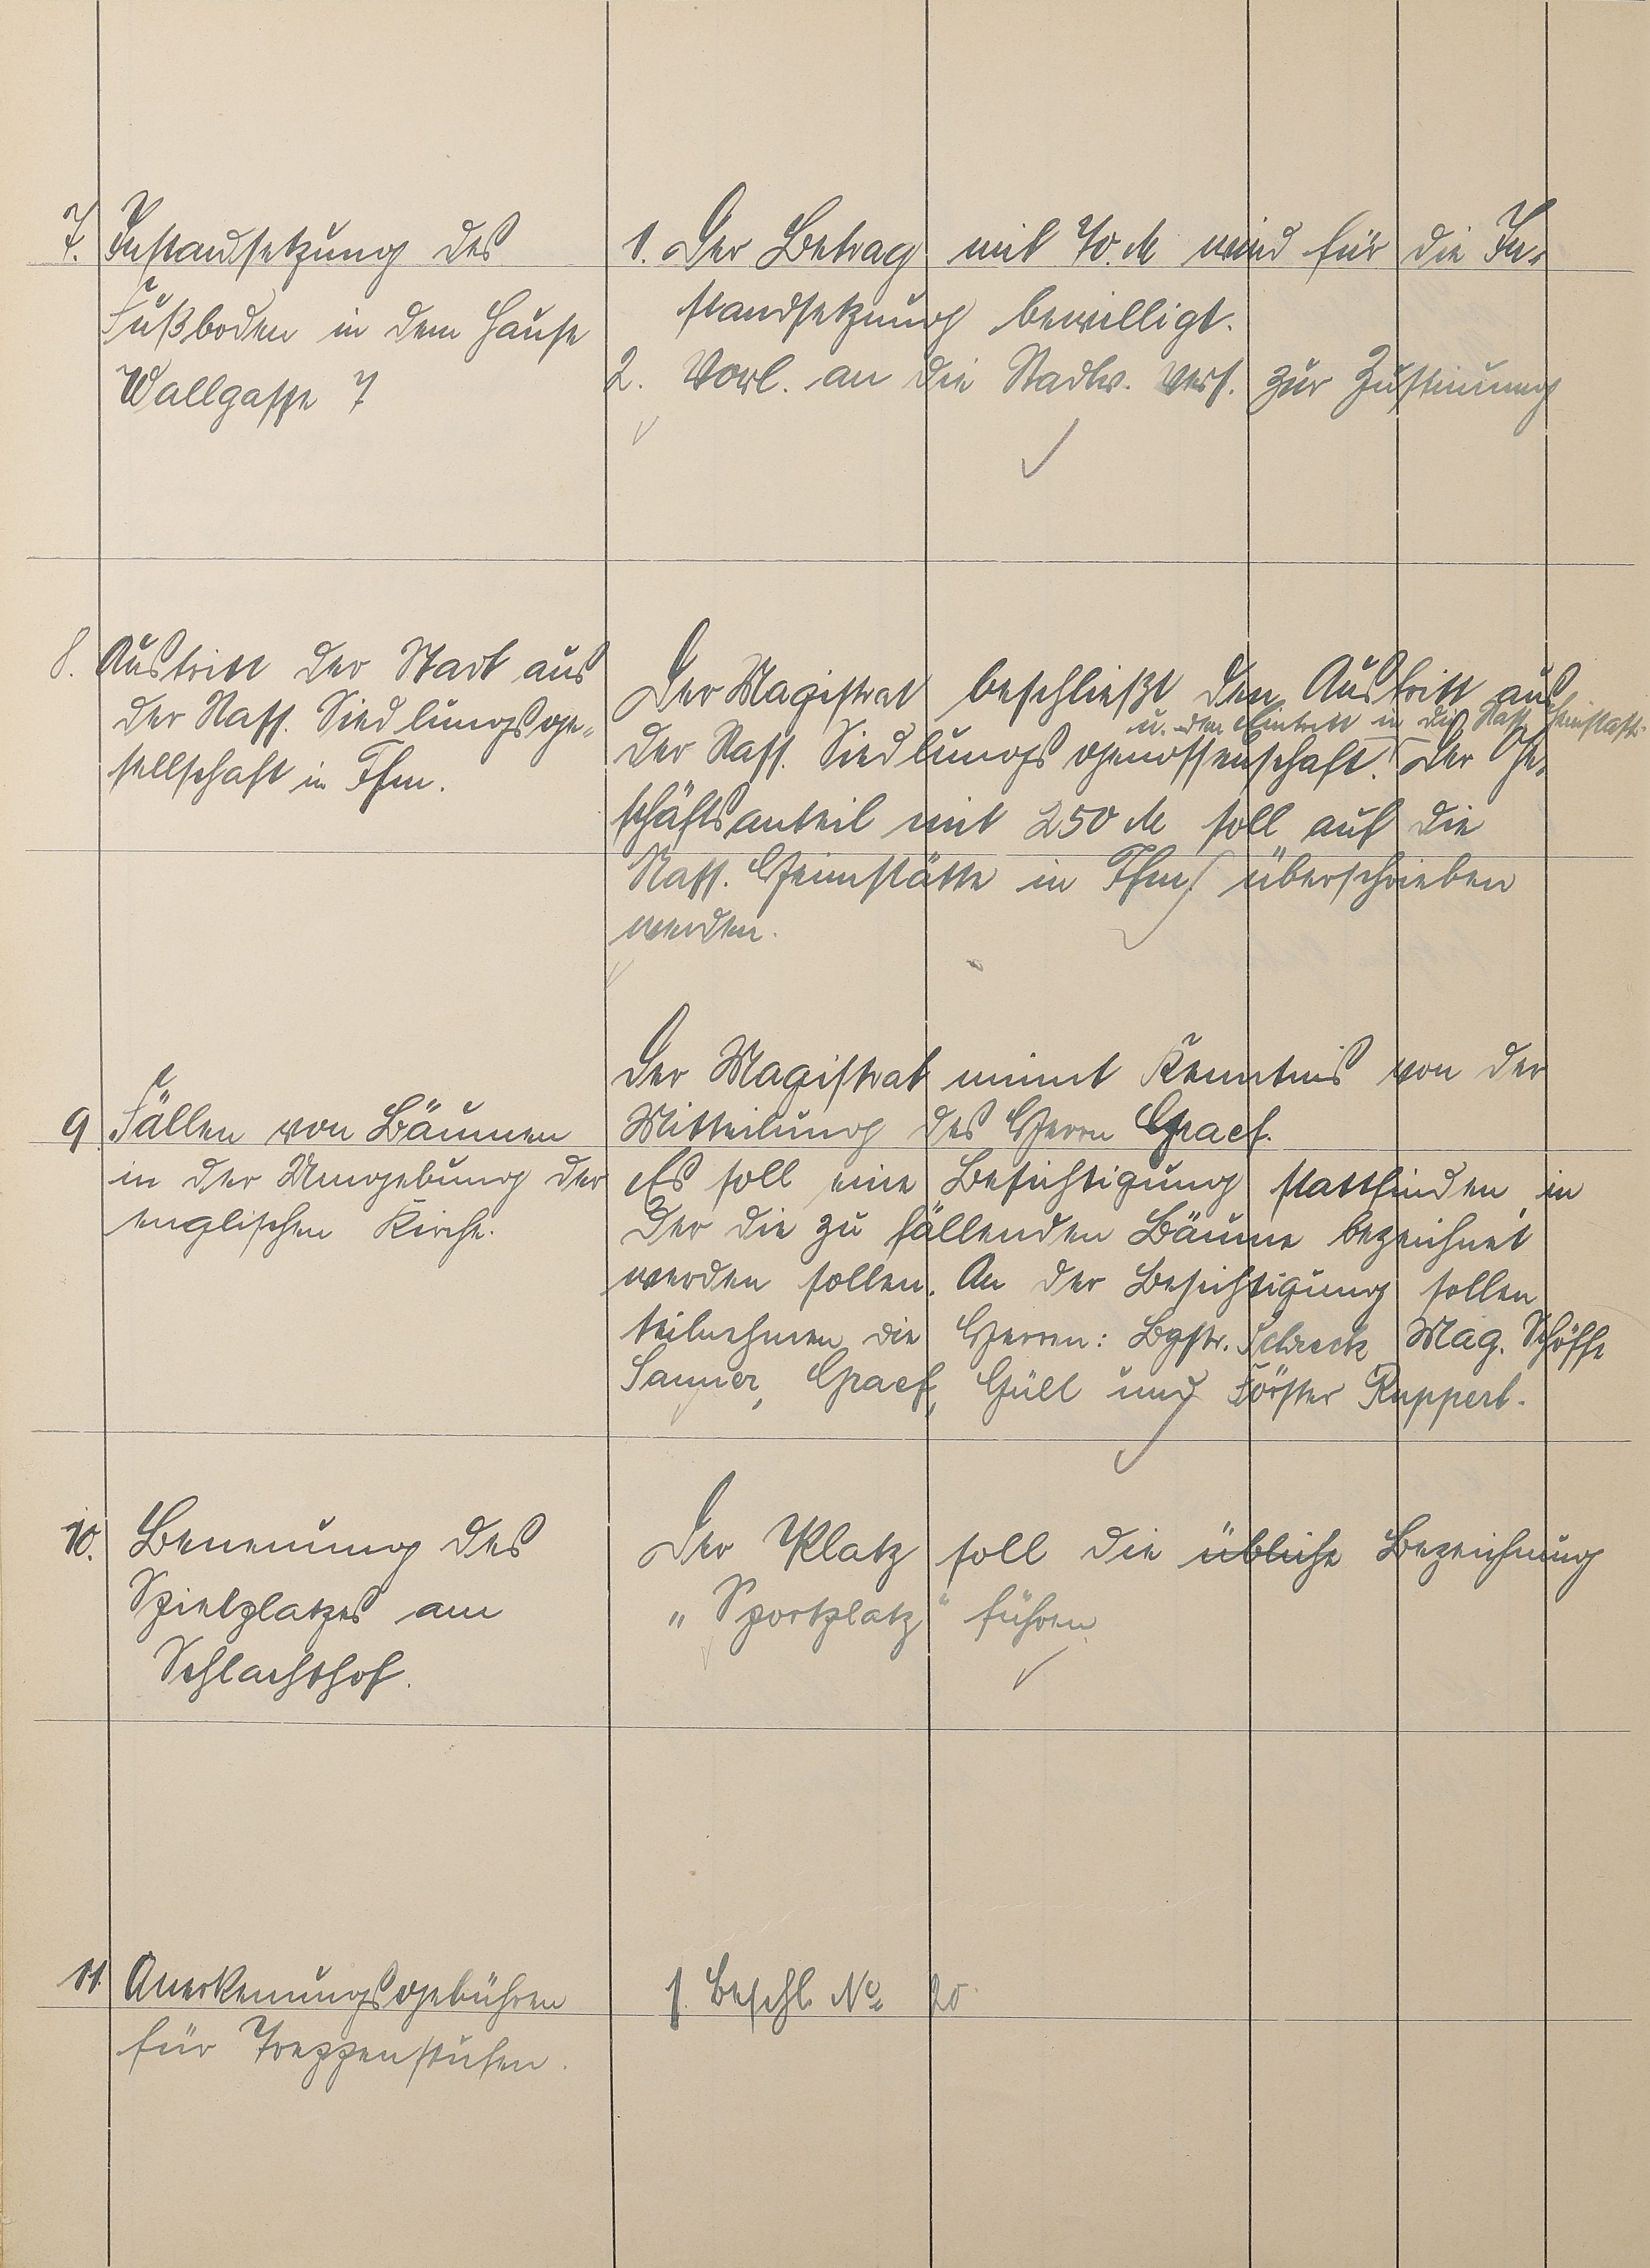 7. Instandsetzung des
Fußboden in dem Hause
Wallgasse 7
1. Der Betrag mit 70. M wird für die In-
standsetzung bewilligt.
2. Vorl. an die Stadtv. Vers. zur Zustimmung
8. Austritt der Stadt aus
der Nass. Siedlungsge-
sellschaft in Ffm.
Der Magistrat beschließt den Austritt aus
u. den Eintritt in die Nass. Heimstätte
der Nass. Siedlungsgenossenschaft. Der Ge-
schäftsanteil mit 250 M soll auf die
Nass. Heimstätte in Ffm überschrieben
werden.
9. Fällen von Bäumen
in der Umgebung der
englischen Kirche.
Der Magistrat nimmt Kenntnis von der
Mitteilung des Herrn Graef.
Es soll eine Besichtigung stattfinden, in
der die zu fällenden Bäume bezeichnet
werden sollen. An der Besichtigung sollen
teilnehmen die Herren: Bgstr. Mag. Schöffe
Sauer, Graef, Güll und Förster Ruppert.
10. Benennung des
Spielplatzes am
Schlachthof.
Der Platz soll die übliche Bezeichnung
„Sportplatz“ führen.
11. Anerkennungsgebühren
für Treppenstufen.
s. Beschl. No 20